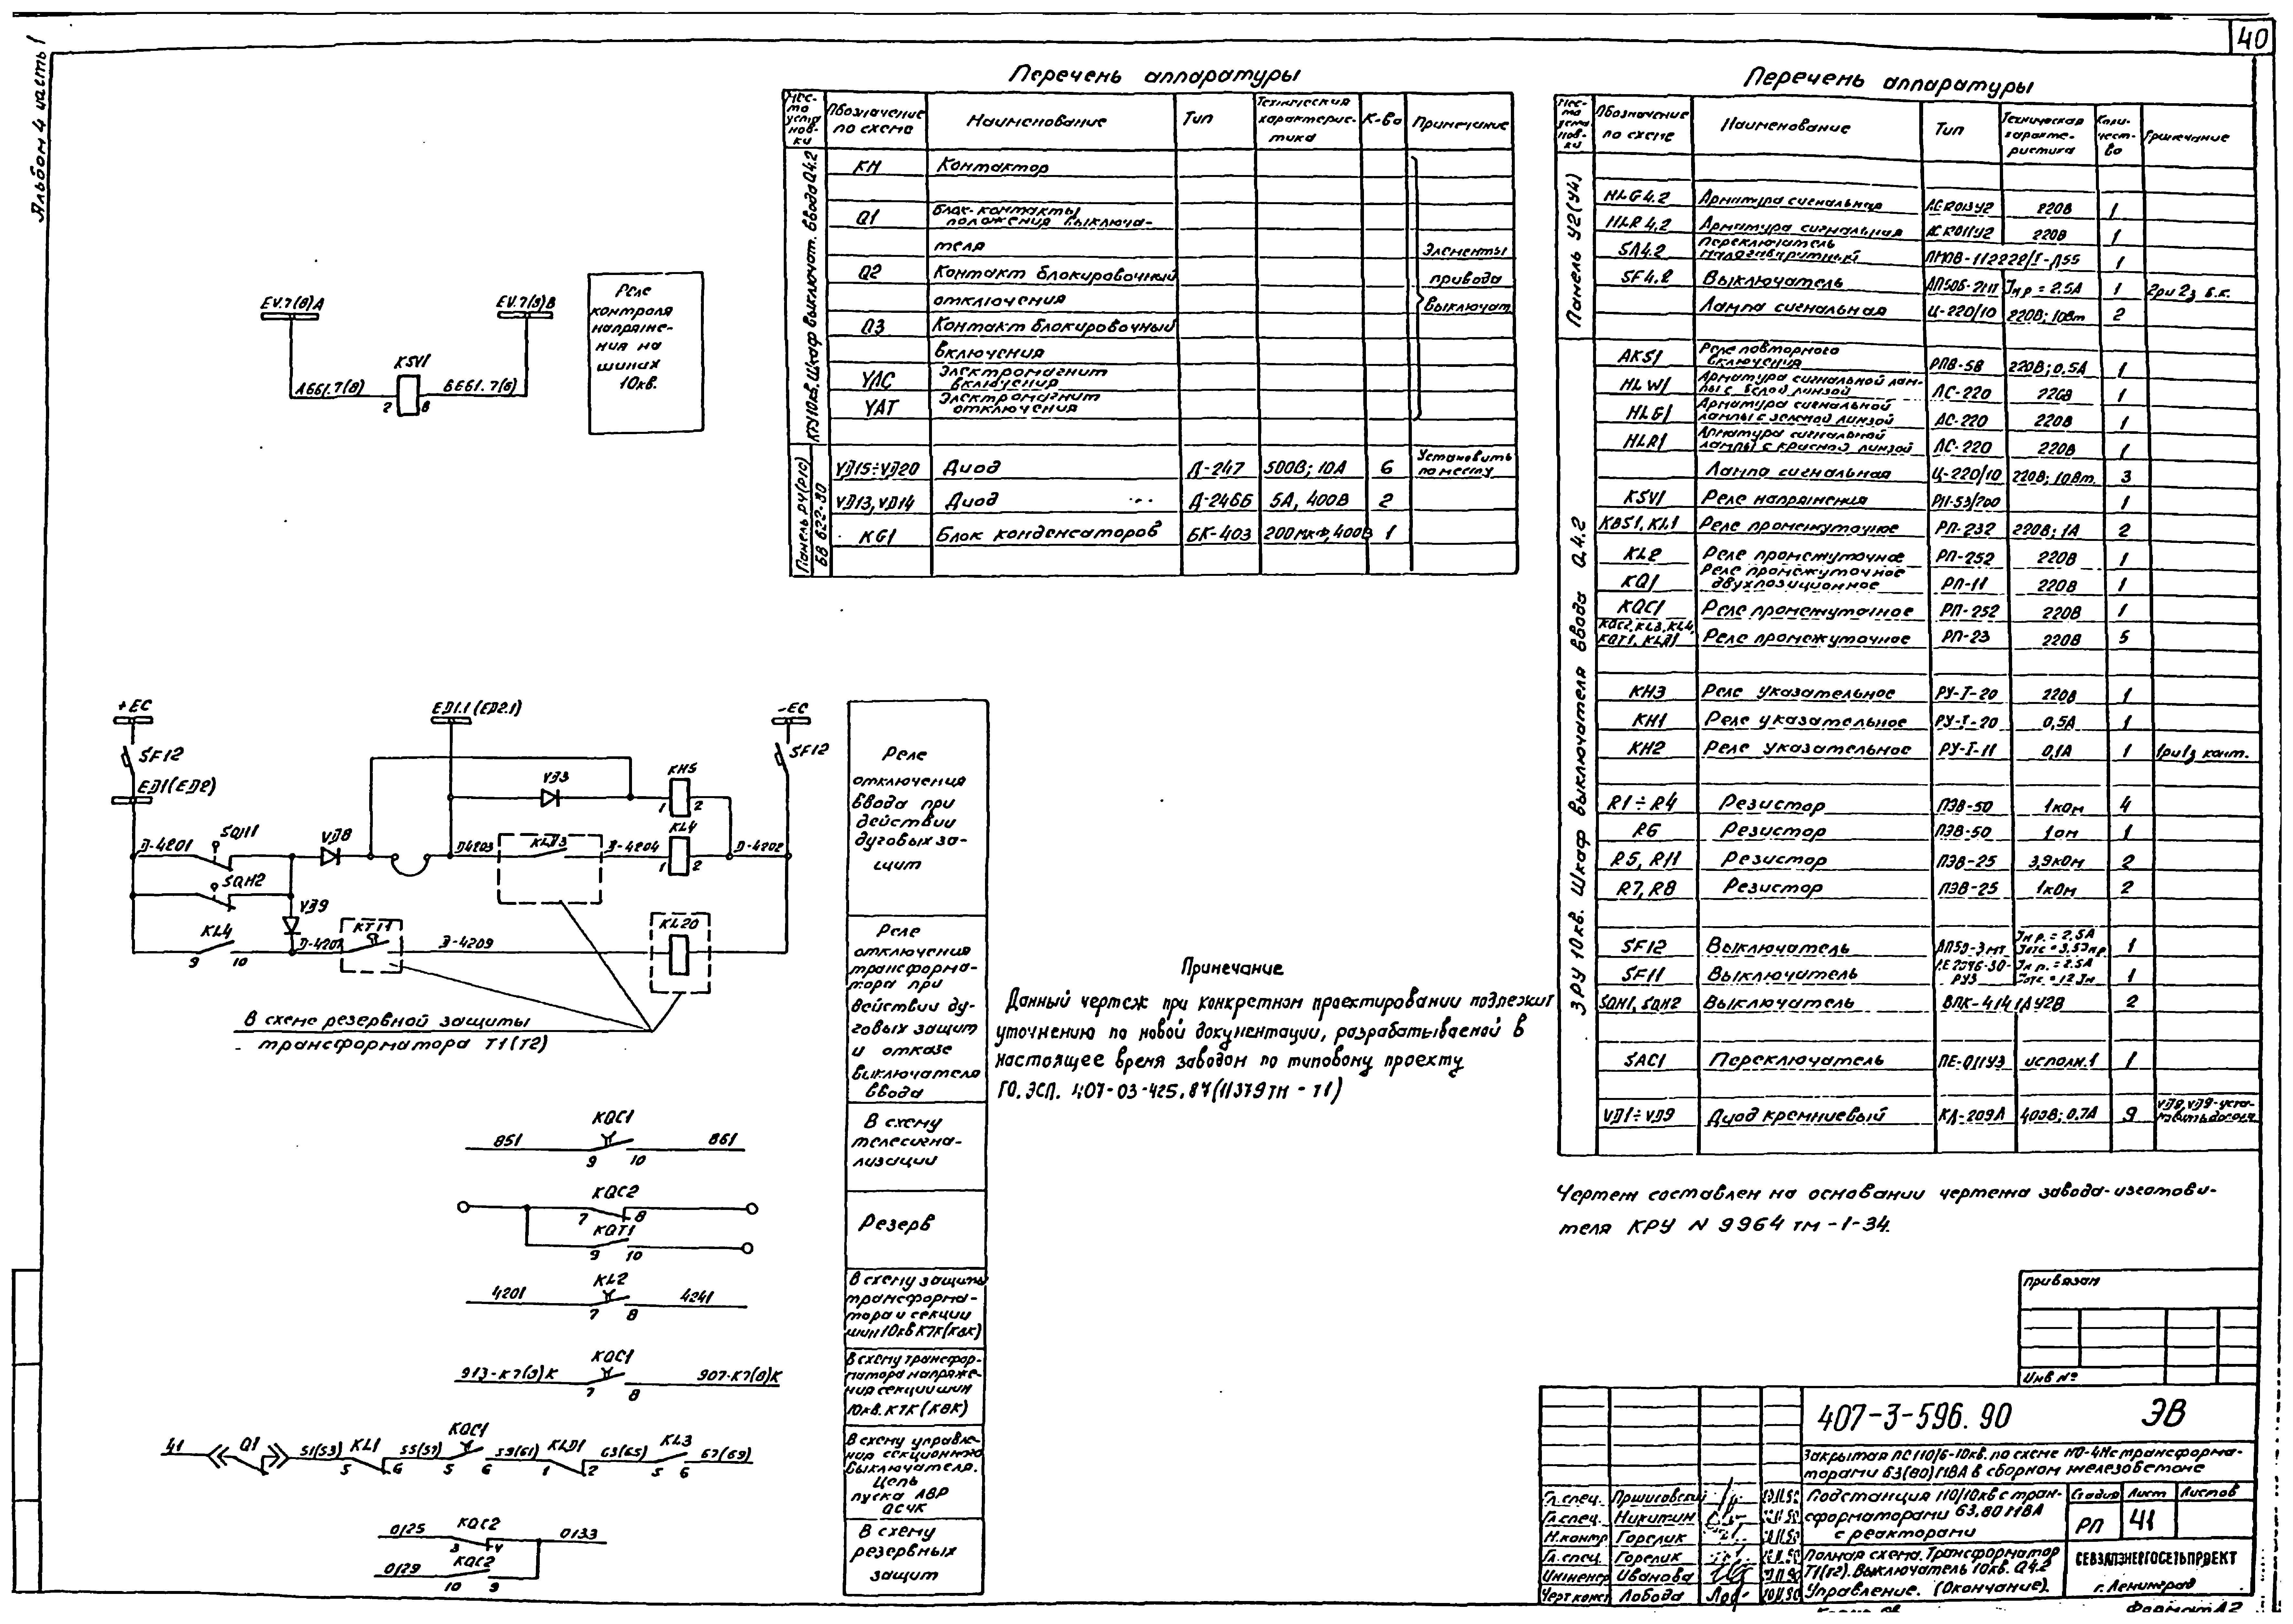 40
Альбом 4 часть 1
Перечень аппаратуры
Место установки
Обозначение по схеме
Наименование
Тип
Техническая характеристика
К-во
Примечание
КРУ 10кв. Шкаф выключат. ввода Q4.2
КМ Контактор
Q1 Блок-контакты положения выключателя
Q2 Контакт блокировочный отключения
Q3 Контакт блокировочный включения
YAC Электромагнит включения
YAT Электромагнит отключения
Элементы
привода
выключат.
Панель РУ(Р1С)
БВ 622-80
VD15÷VD20 Диод Д-247 500В; 10А 6 Установить по месту
VD13, VD14 Диод Д-246Б 5А, 400В 2
KG1 Блок конденсаторов БК-403 200мкФ, 400В 1
Перечень аппаратуры
Место установки
Обозначение по схеме
Наименование
Тип
Техническая характеристика
Количество
Примечание
Панель У2(У4)
HLG4.2 Арматура сигнальная 220В 1
HLR4.2 Арматура сигнальная 220В 1
SA4.2 Переключатель малогабаритный ПМОВ-112222/I-Д55 1
SF4.2 Выключатель Iн.р = 2.5А 1 2р и 2з б.к.
Лампа сигнальная Ц-220/10 220В; 10Вт 2
ЗРУ 10кв. Шкаф выключателя ввода Q4.2
AKS1 Реле повторного включения РПВ-58 220В; 0,5А 1
HLW1 Арматура сигнальной лампы с белой линзой АС-220 220В 1
HLG1 Арматура сигнальной лампы с зеленой линзой АС-220 220В 1
HLR1 Арматура сигнальной лампы с красной линзой АС-220 220В 1
Лампа сигнальная Ц-220/10 220В; 10Вт. 3
KSV1 Реле напряжения РН-53/200 1
KBS1, KL1 Реле промежуточное РП-232 220В; 1А 2
KL2 Реле промежуточное РП-252 220В 1
KQ1 Реле промежуточное двухпозиционное РП-11 220В 1
KQC1 Реле промежуточное РП-252 220В 1
KQC2, KL3, KL4, KQT1, KLD1 Реле промежуточное РП-23 220В 5
KH3 Реле указательное РУ-1-20 220В 1
KH1 Реле указательное РУ-1-20 0,5А 1
KH2 Реле указательное РУ-1-11 0,1А 1 1р и 1з конт.
R1÷R4 Резистор ПЭВ-50 1ком 4
R6 Резистор ПЭВ-50 1ом 1
R5, R11 Резистор ПЭВ-25 3,9ком 2
R7, R8 Резистор ПЭВ-25 1ком 2
SF12 Выключатель АП50-3мт 1
SF11 Выключатель 1
SQH1, SQH2 Выключатель ВПК-4141АУ2В 2
SAC1 Переключатель ПЕ-011У3 исполн.1 1
VD1÷VD9 Диод кремниевый КД-209А 400В; 0,7А 9
EV.7(8)A
EV.7(8)B
A661.7(8)
KSV1
B661.7(8)
2
8
Реле
контроля
напряже-
ния на
шинах
10кв.
+EC
SF12
ED1(ED2)
ED1.1(ED2.1)
-EC
SF12
VD3
KH5
1
2
D-4201
SQH1
VD8
D4203
KLD3
D-4204
KL4
1
2
D-4202
SQH2
VD9
KL4
9
10
D-4207
KT11
D-4209
KL20
В схеме резервной защиты
трансформатора Т1(Т2)
Реле
отключения
ввода при
действии
дуговых за-
щит
Реле
отключения
трансформа-
тора при
действии ду-
говых защит
и отказе
выключателя
ввода
Примечание
Данный чертеж при конкретном проектировании подлежит
уточнению по новой документации, разрабатываемой в
настоящее время заводом по типовому проекту
ГО.ЭСП. 407-03-425.87(11379тм - т1)
851
KQC1
861
9
10
В схему
телесигна-
лизации
KQC2
7
8
KQT1
9
10
Резерв
4201
KL2
4241
7
8
В схему защиты
трансформа-
тора и секции
шин 10кв К7К(К8К)
913-К7(8)К
KQC1
907-К7(8)К
7
8
В схему трансфор-
матора напряже-
ния секции шин
10кв. К7К(К8К)
41
Q1
51(53)
KL1
5
6
55(57)
KQC1
5
6
59(61)
KLD1
1
2
63(65)
KL3
5
6
67(69)
В схему управле-
ния секционного
выключателя.
Цепь
пуска АВР
0125
KQC2
3
4
0133
0129
KQC2
10
9
В схему
резервных
защит
Чертеж составлен на основании чертежа завода-изготови-
теля КРУ N 9964 тм-1-34.
Привязан
Инв №
407-3-596.90
ЭВ
Закрытая ПС 110/6-10кв. по схеме 110-4Н с трансформа-
торами 63(80)МВА в сборном железобетоне
Гл.спец.
Гл.спец. Никитин
Н.контр Горелик
Гл.спец. Горелик
Инженер Иванова
Черт.конст Лобода
Подстанция 110/10кв с тран-
сформаторами 63,80 МВА
с реакторами
Стадия
Лист
Листов
РП
41
Полная схема. Трансформатор
Т1(Т2). Выключатель 10кв. Q4.2
Управление. (Окончание).
СЕВЗАПЭНЕРГОСЕТЬПРОЕКТ
г. Ленинград
Формат А2